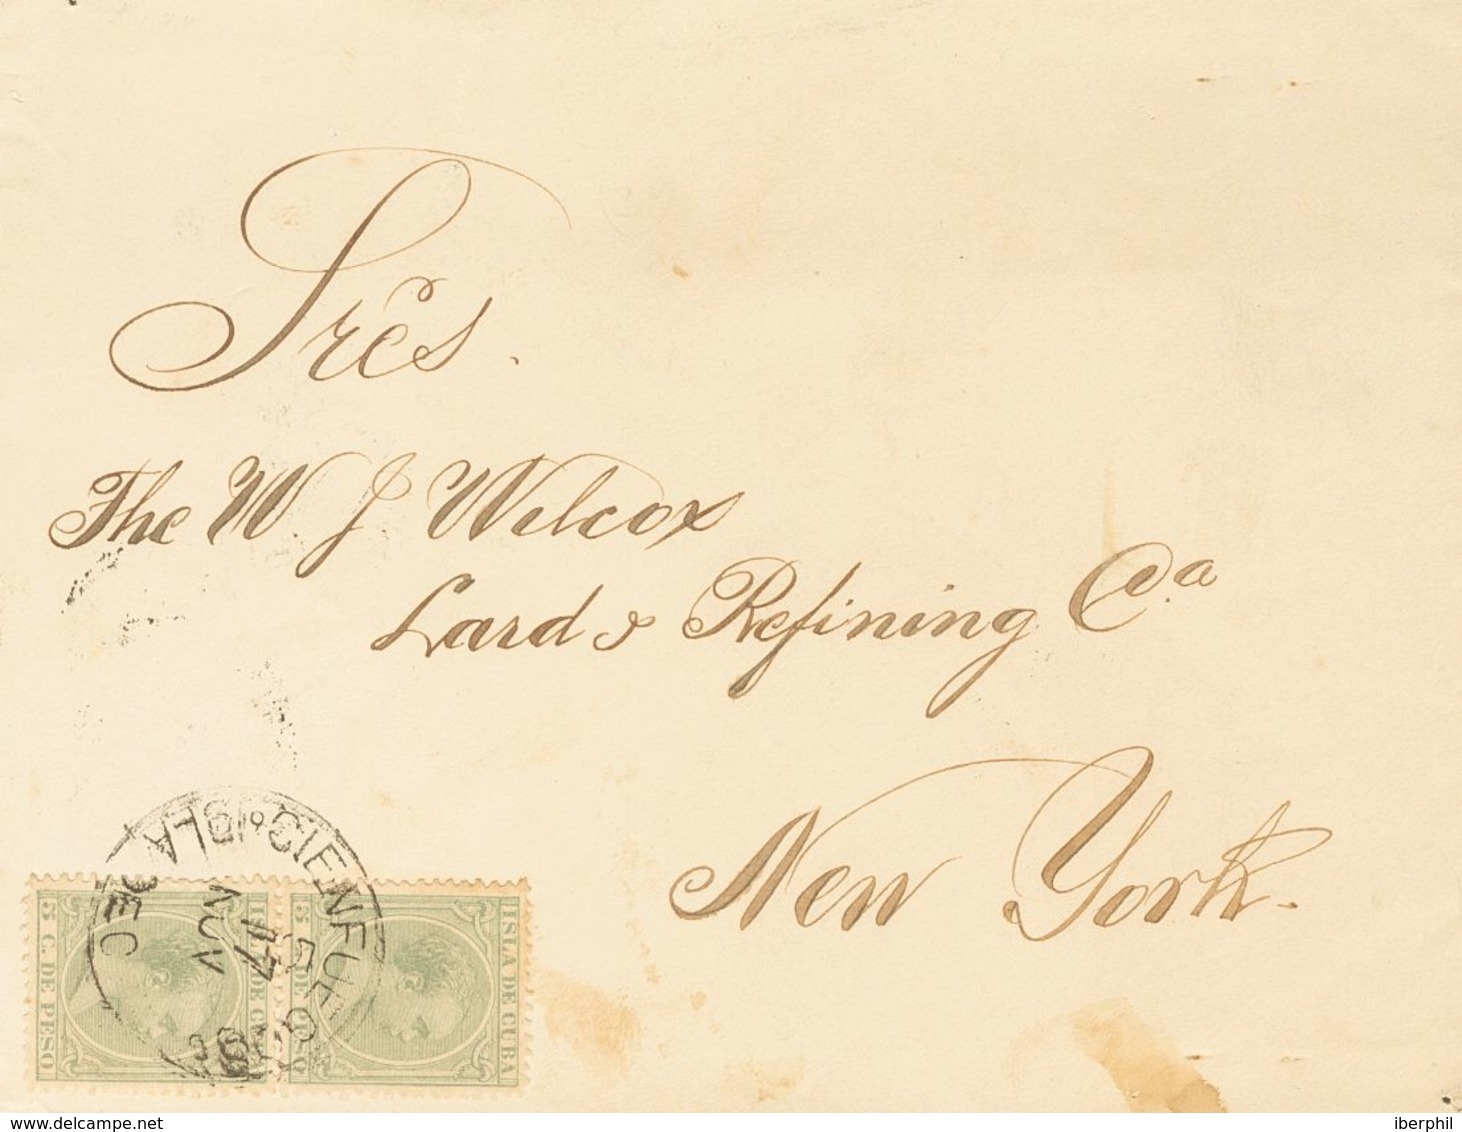 Sres.
The W. J Wilcox
Lard & Refining Ca
New York.
CIENFUEGOS
ISLA DE C
NOV
17
ISLA DE CUBA
5 C. DE PESO
ISLA DE CUBA
5 C. DE PESO
www.delcampe.net
iberphil